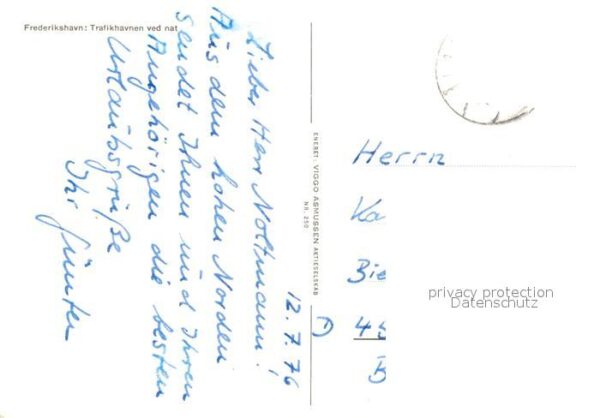 Frederikshavn: Trafikhavnen ved nat
12.7.76
Lieber Herr Noltmann!
Aus dem hohen Norden
sendet Ihnen und Ihren
Angehörigen die besten
Urlaubsgrüße
Ihr Günter
ENERET: VIGGO ASMUSSEN AKTIESELSKAB
NR. 250
Herrn
Ka
Bie
D
privacy protection
Datenschutz